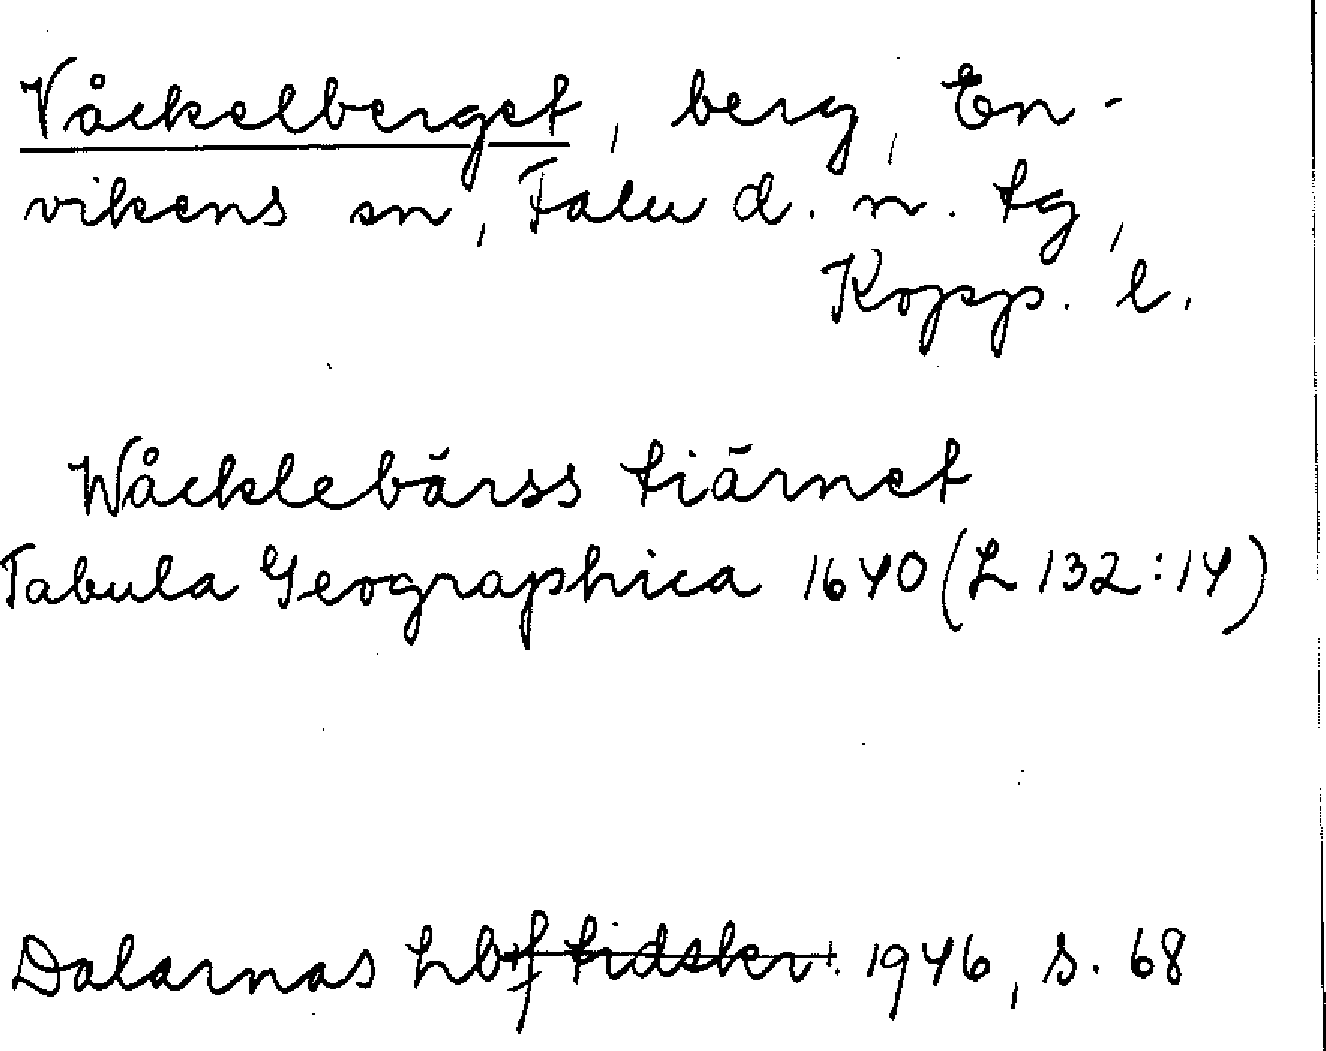 Våckelberget, berg, En-
vikens sn, Falu d. n. tg,
Kopp. l.
Wåcklebärss tiärnet
Tabula Geographica 1640 (L 132:14)
Dalarnas hbf tidskr. 1946, s. 68